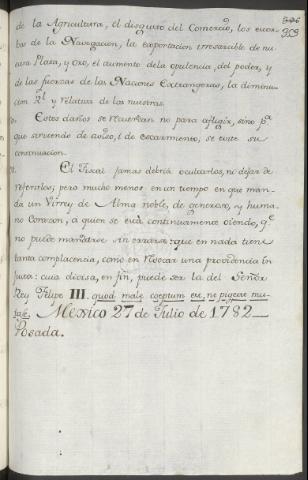 de la Agricultura, el disgusto del Comercio, los excor
bos de la Navegacion, la exportacion irresarcible de nu
extra Plata, y oro, el aumento de la opulencia, del poder, y
de las fuerzas de las Naciones Extrangeras, la diminu
cion Rl y relativa de las nuestras.
Estos daños se recuerdan no para afligir, sino pa
que sirviendo de aviso, i de escarmiento, se evite su
continuacion.
El Fiscal jamas debria ocultarlos, ni dejar de
referirlos; pero mucho menos en un tiempo en que man
da un Virrey de Alma noble, de generoso, y huma
no Corazon, a quien se està continuamente oiendo, qe
no puede mandarse sin errarse: que en nada tiene
tanta complacencia, como en revocar una providencia in
justa: cuia divisa, en fin, puede ser la del Señor
Rey Felipe III. quod male coeptum est, ne pigeat mu-
tasse. Mexico 27 de Julio de 1782
Posada.